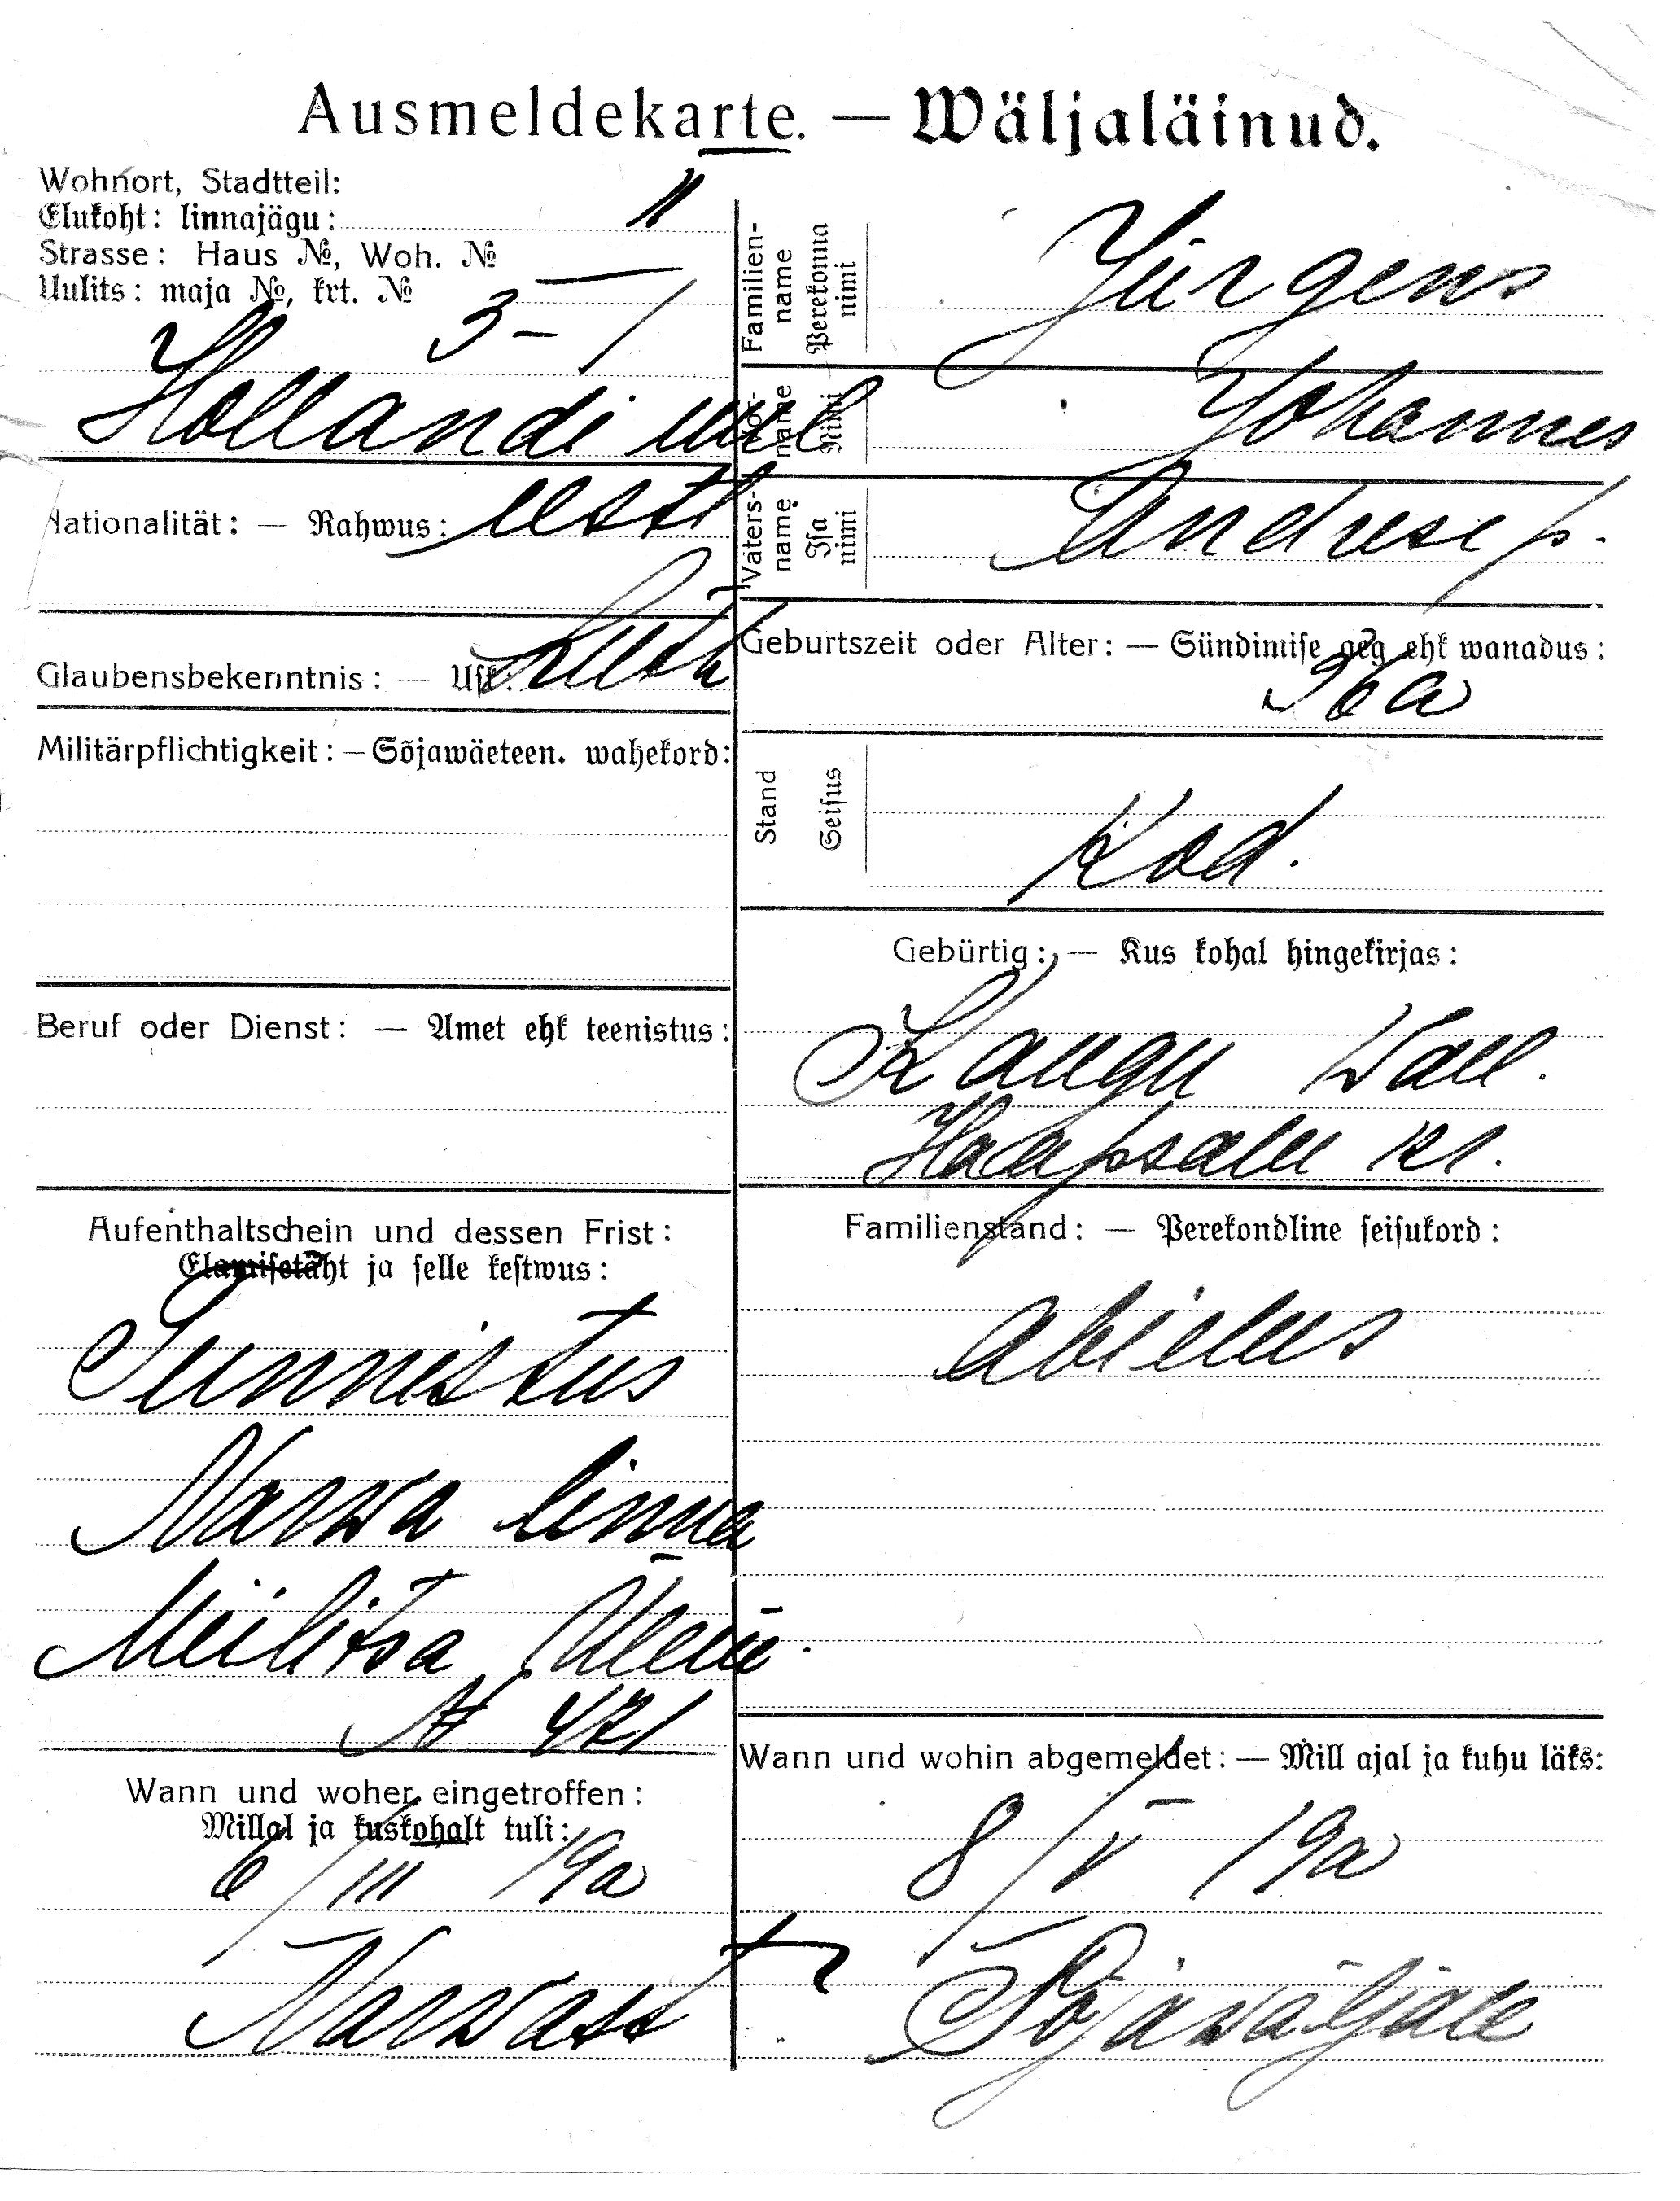 Ausmeldekarte. — Wäljaläinud.
Wohnort, Stadtteil:
Elukoht: linnajägu: II
Strasse: Haus №, Woh. №
Uulits: maja №, krt. №
3 — 1
Hollandi uul
Nationalität: — Rahwus: eestl
Glaubensbekenntnis: — Usk: Luth
Militärpflichtigkeit: — Sõjawäeteen. wahekord:
Beruf oder Dienst: — Amet ehk teenistus:
Aufenthaltschein und dessen Frist:
Elamisetäht ja selle kestwus:
Tunnistus
Narwa linna
Miilitsa Ülem
№ 471
Wann und woher eingetroffen:
Millal ja kuskohalt tuli:
6/III 19a
Narwast
Familien-
name
Perekonna
nimi
Jürgens
Vor-
name
Nimi
Johannes
Vaters-
name
Isa
nimi
Andrese p.
Geburtszeit oder Alter: — Sündimise aeg ehk wanadus:
36a
Stand
Seisus
Kod.
Gebürtig: — Kus kohal hingekirjas:
wall.
Haapsalu kr.
Familienstand: — Perekondline seisukord:
abielus
Wann und wohin abgemeldet: — Mill ajal ja kuhu läks:
8/V 19a
Sõjawäljale